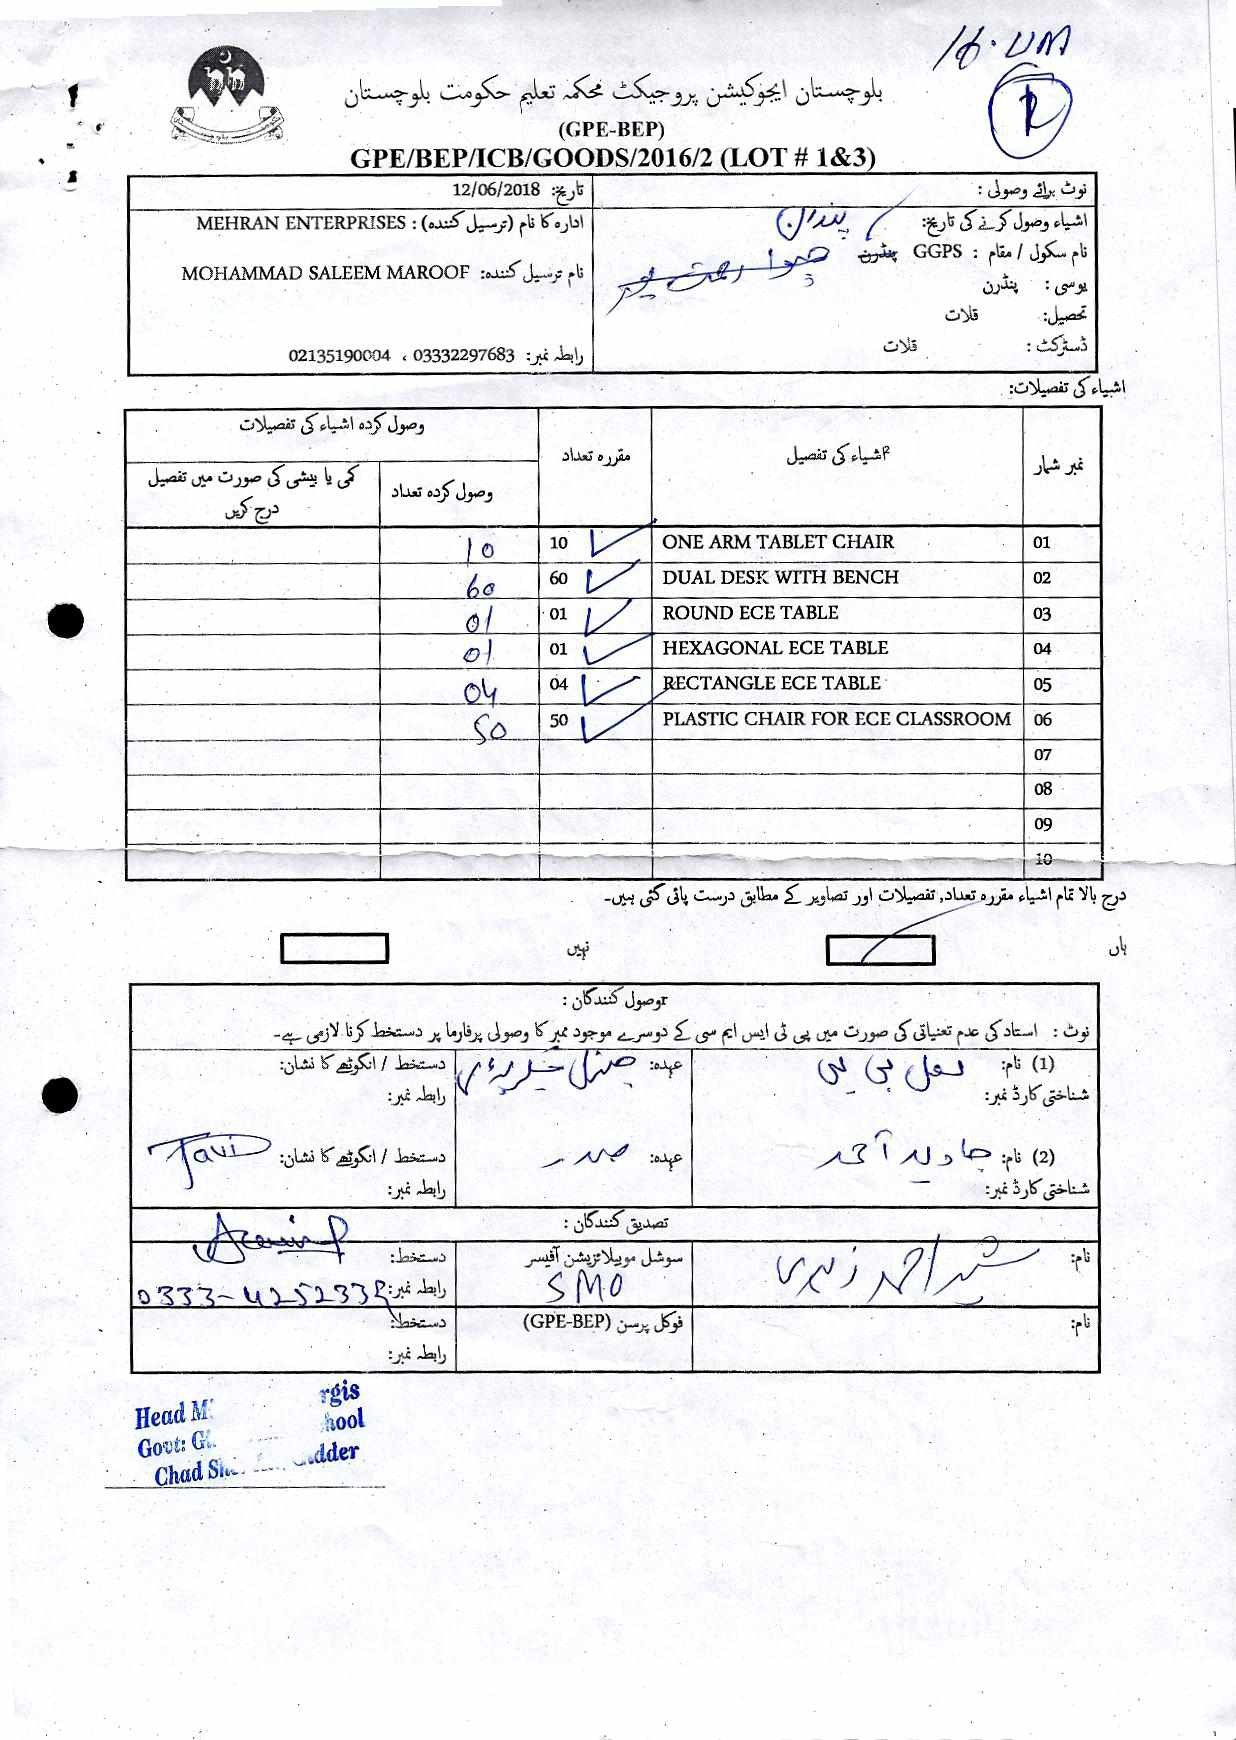 بلوچستان ایجوکیشن پروجیکٹ محکمہ تعلیم حکومت بلوچستان
(GPE-BEP)
GPE/BEP/ICB/GOODS/2016/2 (LOT # 1&3)
نوٹ برائے وصولی :
تاریخ: 12/06/2018
اشیاء وصول کرنے کی تاریخ:
ادارہ کا نام (ترسیل کنندہ) : MEHRAN ENTERPRISES
نام سکول / مقام : GGPS پنڈرن
نام ترسیل کنندہ: MOHAMMAD SALEEM MAROOF
یوسی : پنڈرن
تحصیل: قلات
ڈسٹرکٹ : قلات
رابطہ نمبر: 03332297683 ، 02135190004
اشیاء کی تفصیلات:
نمبر شمار
اشیاء کی تفصیل
مقررہ تعداد
وصول کردہ اشیاء کی تفصیلات
وصول کردہ تعداد
کمی یا بیشی کی صورت میں تفصیل درج کریں
01 ONE ARM TABLET CHAIR 10 10
02 DUAL DESK WITH BENCH 60 60
03 ROUND ECE TABLE 01 01
04 HEXAGONAL ECE TABLE 01 01
05 RECTANGLE ECE TABLE 04 04
06 PLASTIC CHAIR FOR ECE CLASSROOM 50 50
07
08
09
10
درج بالا تمام اشیاء مقررہ تعداد, تفصیلات اور تصاویر کے مطابق درست پائی گئی ہیں۔
ہاں
نہیں
وصول کنندگان :
نوٹ : استاد کی عدم تعیناتی کی صورت میں پی ٹی ایس ایم سی کے دوسرے موجود ممبر کا وصولی پرفارما پر دستخط کرنا لازمی ہے۔
(1) نام: لعل بی بی
عہدہ: جنرل
دستخط / انگوٹھے کا نشان:
شناختی کارڈ نمبر:
رابطہ نمبر:
(2) نام: جاوید احمد
عہدہ: صدر
دستخط / انگوٹھے کا نشان: Javid
شناختی کارڈ نمبر:
رابطہ نمبر:
تصدیق کنندگان :
نام: شبیر احمد زہری
سوشل موبیلائزیشن آفیسر
SMO
دستخط:
رابطہ نمبر:
نام:
فوکل پرسن (GPE-BEP)
دستخط:
رابطہ نمبر:
Head
Govt:
Chad